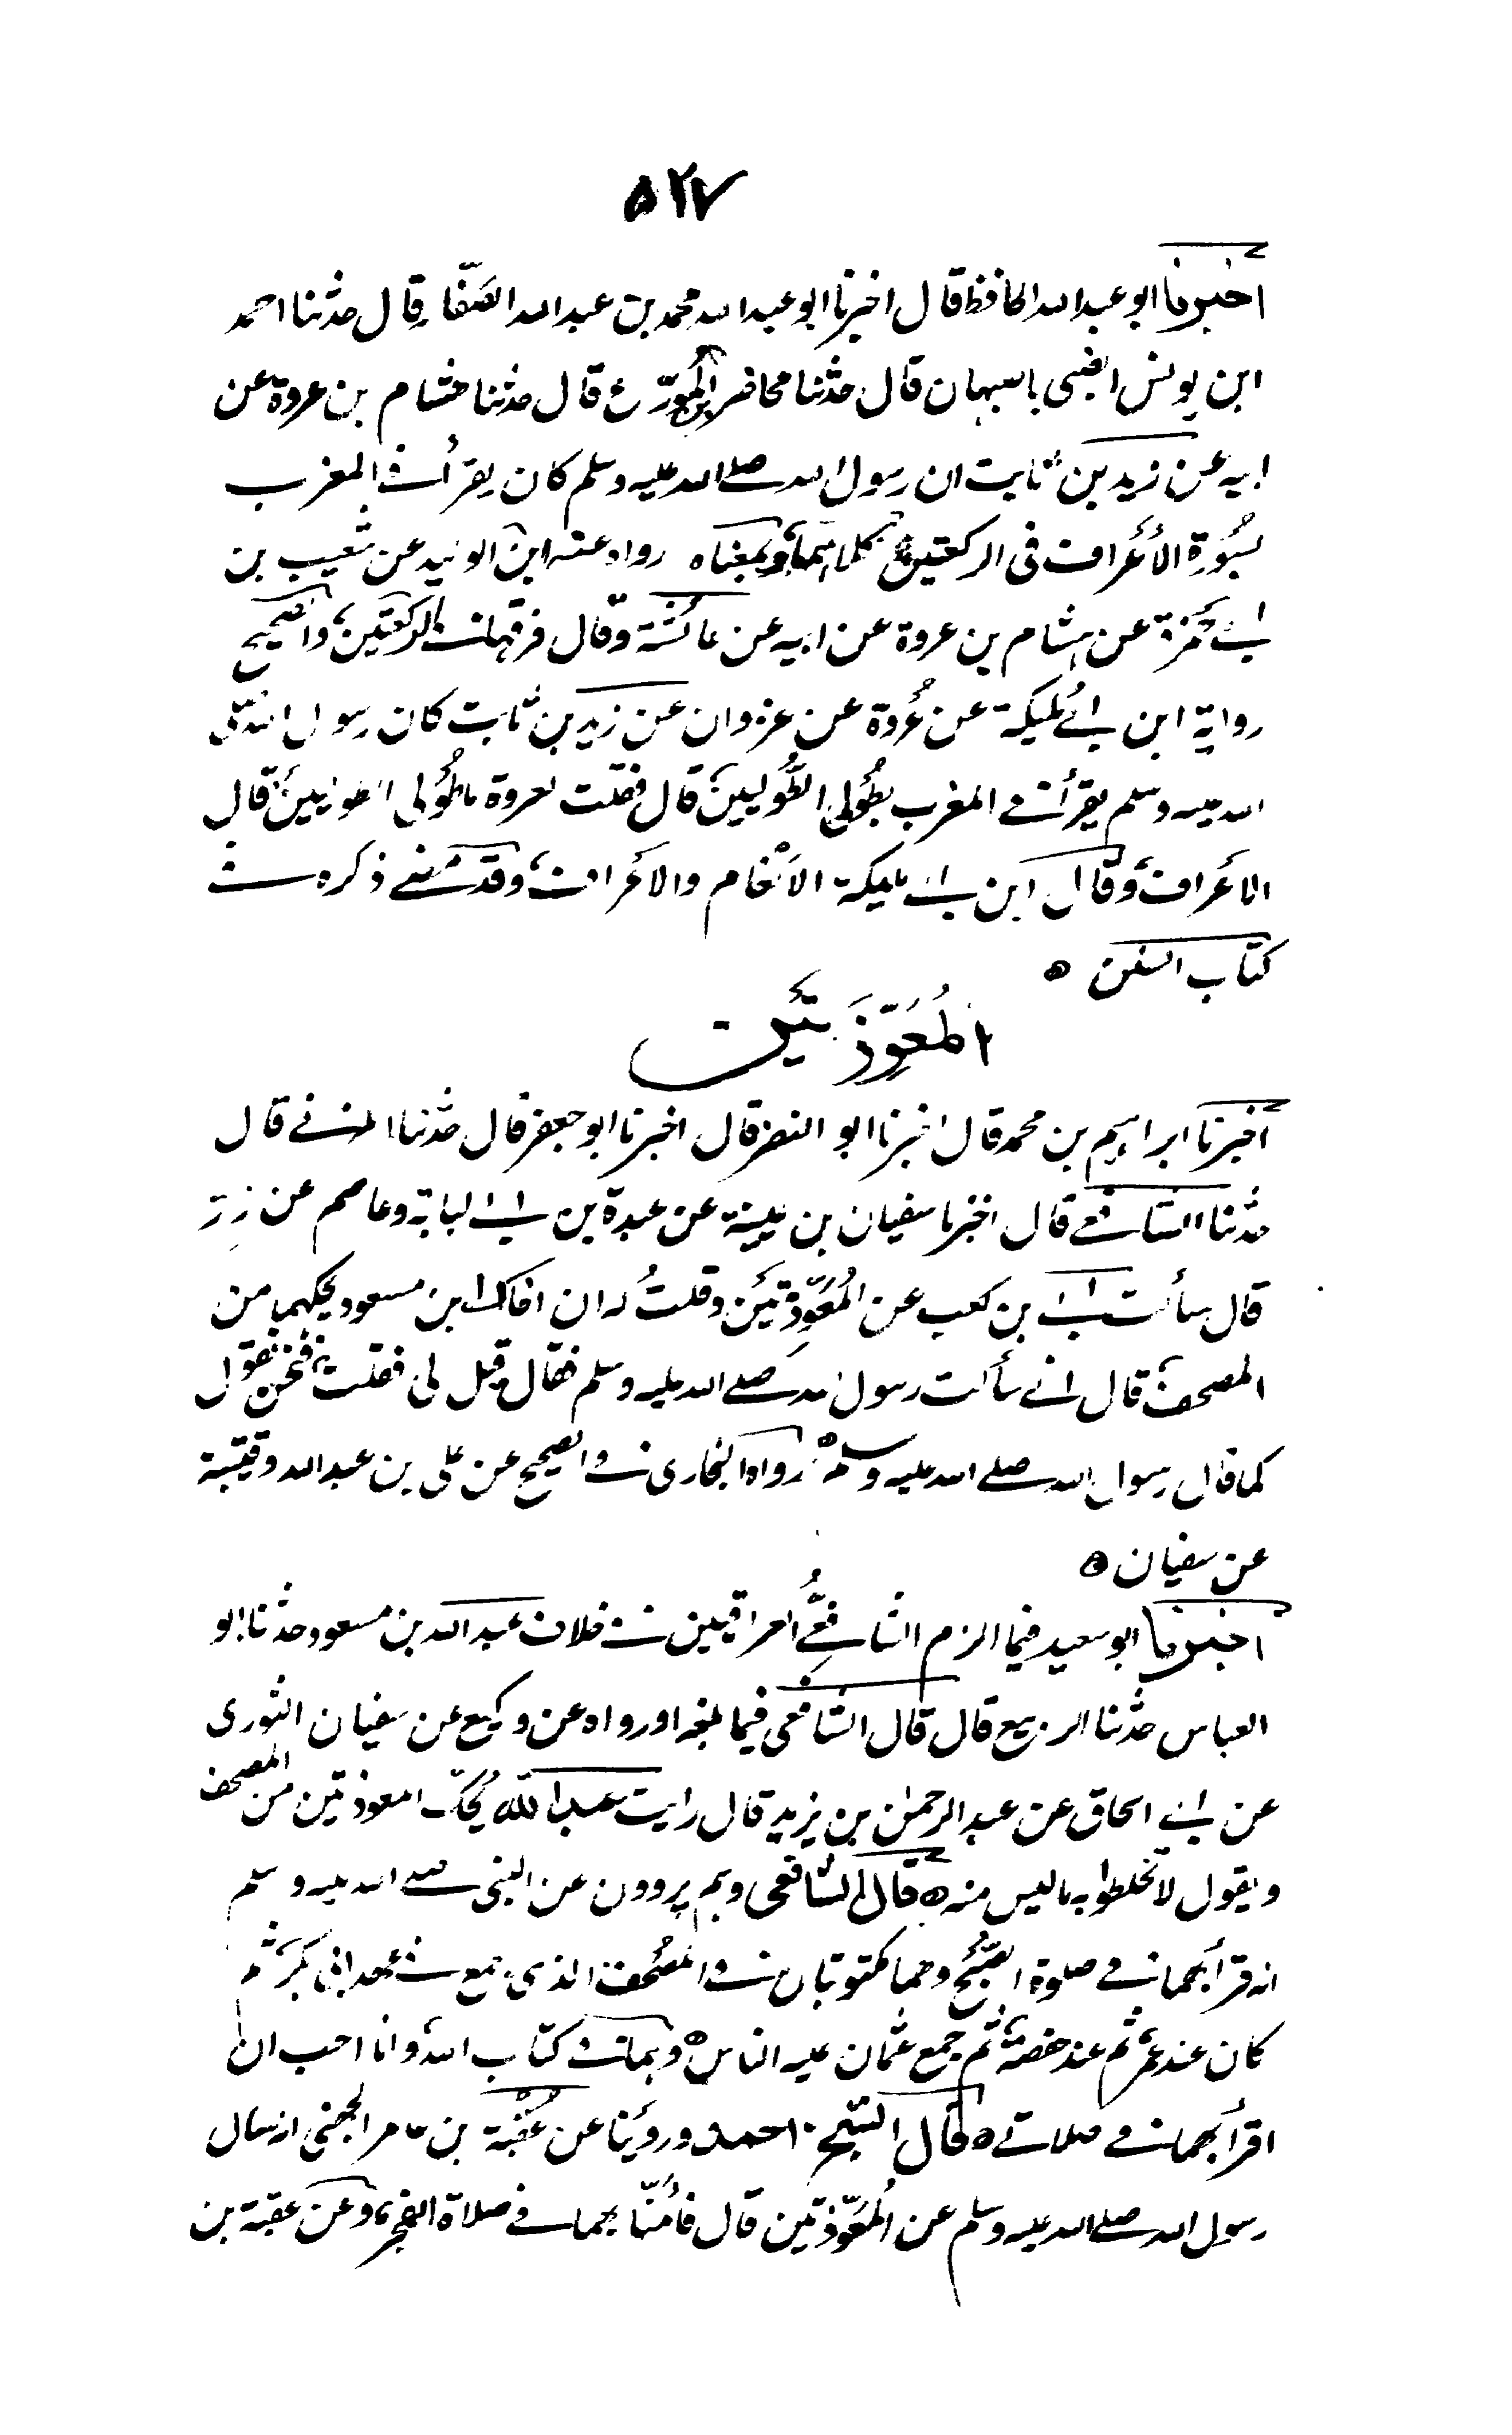 ٥٢٧
اخبرنا ابو عبد الله الحافظ قال اخبرنا ابو عبد الله محمد بن عبد الله الصَفّار قال حدثنا احمد
ابن يونس الضبى باصبهان قال حدثنا محاضر بن المُورّع قال حدثنا هشام بن عروة عن
ابيه عن زيد بن ثابت ان رسول الله صلى الله عليه وسلم كان يقرأ فى المغرب
بسُورة الأعراف فى الركعتين كلتاهما وبمعناه رواه عنه ابن الوليد عن شعيب بن
ابى حمزة عن هشام بن عروة عن ابيه عن عائشة وقال فرقها فى الركعتين والصحيح
رواية ابن ابى مُليكة عن عُروة عن مروان عن زيد بن ثابت كان رسول الله صلى
الله عليه وسلم يقرأ فى المغرب بطُولى الطُوليين قال فقلت لعروة ما طُولى الطوليين قال
الأعراف وقال ابن ابى مليكة الأنعام والأعراف وقد مضى ذكره فى
كتاب السنن ٥
المُعَوّذَتَين
اخبرنا ابراهيم بن محمد قال اخبرنا ابو النضر قال اخبرنا ابو جعفر قال حدثنا المزنى قال
حدثنا الشافعى قال اخبرنا سفيان بن عيينة عن عبدة بن ابى لبابة وعاصم عن زِرّ
قال سألت ابى بن كعب عن المُعَوّذتين وقلتُ له ان اخاك ابن مسعود يحكهما من
المصحف قال انى سألت رسول الله صلى الله عليه وسلم فقال قيل لى فقلت فنحن نقول
كما قال رسول الله صلى الله عليه وسلم رواه البخارى فى الصحيح عن على بن عبد الله وقتيبة
عن سفيان ٥
اخبرنا ابو سعيد فيما الزم الشافعىُّ العراقيين فى خلاف عبد الله بن مسعود حدثنا ابو
العباس حدثنا الربيع قال قال الشافعى فيما بلغه او رواه عن وكيع عن سفيان الثورى
عن ابى اسحاق عن عبد الرحمن بن يزيد قال رايت عبد الله يُحكّ المعوذتين من المصحف
ويقول لا تخلطوا به ما ليس منه ٥ قال الشافعى وهم يروون عن النبى صلى الله عليه وسلم
انه قرأ بهما فى صلوة الصُبْح وهما مكتوبتان فى المصُحف الذى جمع فى عهد ابى بكر ثم
كان عند عمر ثم عند حفصة ثم جمع عثمان عليه الناس ٥ وهما من كتاب الله وانا احب ان
اقرأ بهما فى صلاتى ٥ قال الشيخ احمد وروّينا عن عُقْبة بن عامر الجهنى انه سال
رسول الله صلى الله عليه وسلم عن المُعَوّذتين قال فأمّنا بهما فى صلاة الفجر وعن عقبة بن